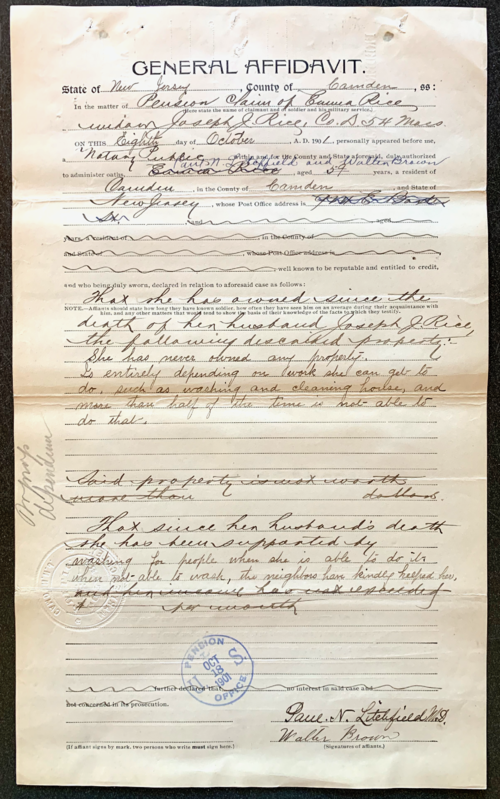 GENERAL AFFIDAVIT.
State of New Jersey, County of Camden, ss:
In the matter of Pension Claim of Emma Rice,
(Here state the name of claimant and of soldier and his military service.)
widow Joseph J. Rice, Co. D 54 Mass
ON THIS Eighth day of October, A. D. 1901, personally appeared before me,
a Notary Public within and for the County and State aforesaid, duly authorized
to administer oaths, Paul N. Litchfield and Walter Brown
Emma Rice, aged 54 years, a resident of
Camden, in the County of Camden and State of
New Jersey, whose Post Office address is
St. and aged
years, a resident of in the County of
and State of, whose Post Office address is
, well known to be reputable and entitled to credit,
and who being duly sworn, declared in relation to aforesaid case as follows:
That she has owned since the
NOTE.—Affiants should state how long they have known soldier, how often they have seen him on an average during their acquaintance with
him, and any other matters that would tend to show the basis of their knowledge of the facts to which they testify.
death of her husband Joseph J. Rice,
the following described property:
She has never owned any property.
Is entirely depending on work she can get to
do, such as washing and cleaning house, and
more than half of the time is not able to
do that.
No prop
dependence
Said property is not worth
more than dollars.
That since her husband's death
she has been supported by
washing for people when she is able to do it.
when not able to wash, the neighbors have kindly helped her,
and her income has not exceeded
$ per month
PENSION
OCT
18
1901
OFFICE
U S
further declared that no interest in said case and
not concerned in its prosecution.
Paul N. Litchfield M.D.
Walter Brown
[If affiant signs by mark, two persons who write must sign here.]
(Signatures of affiants.)